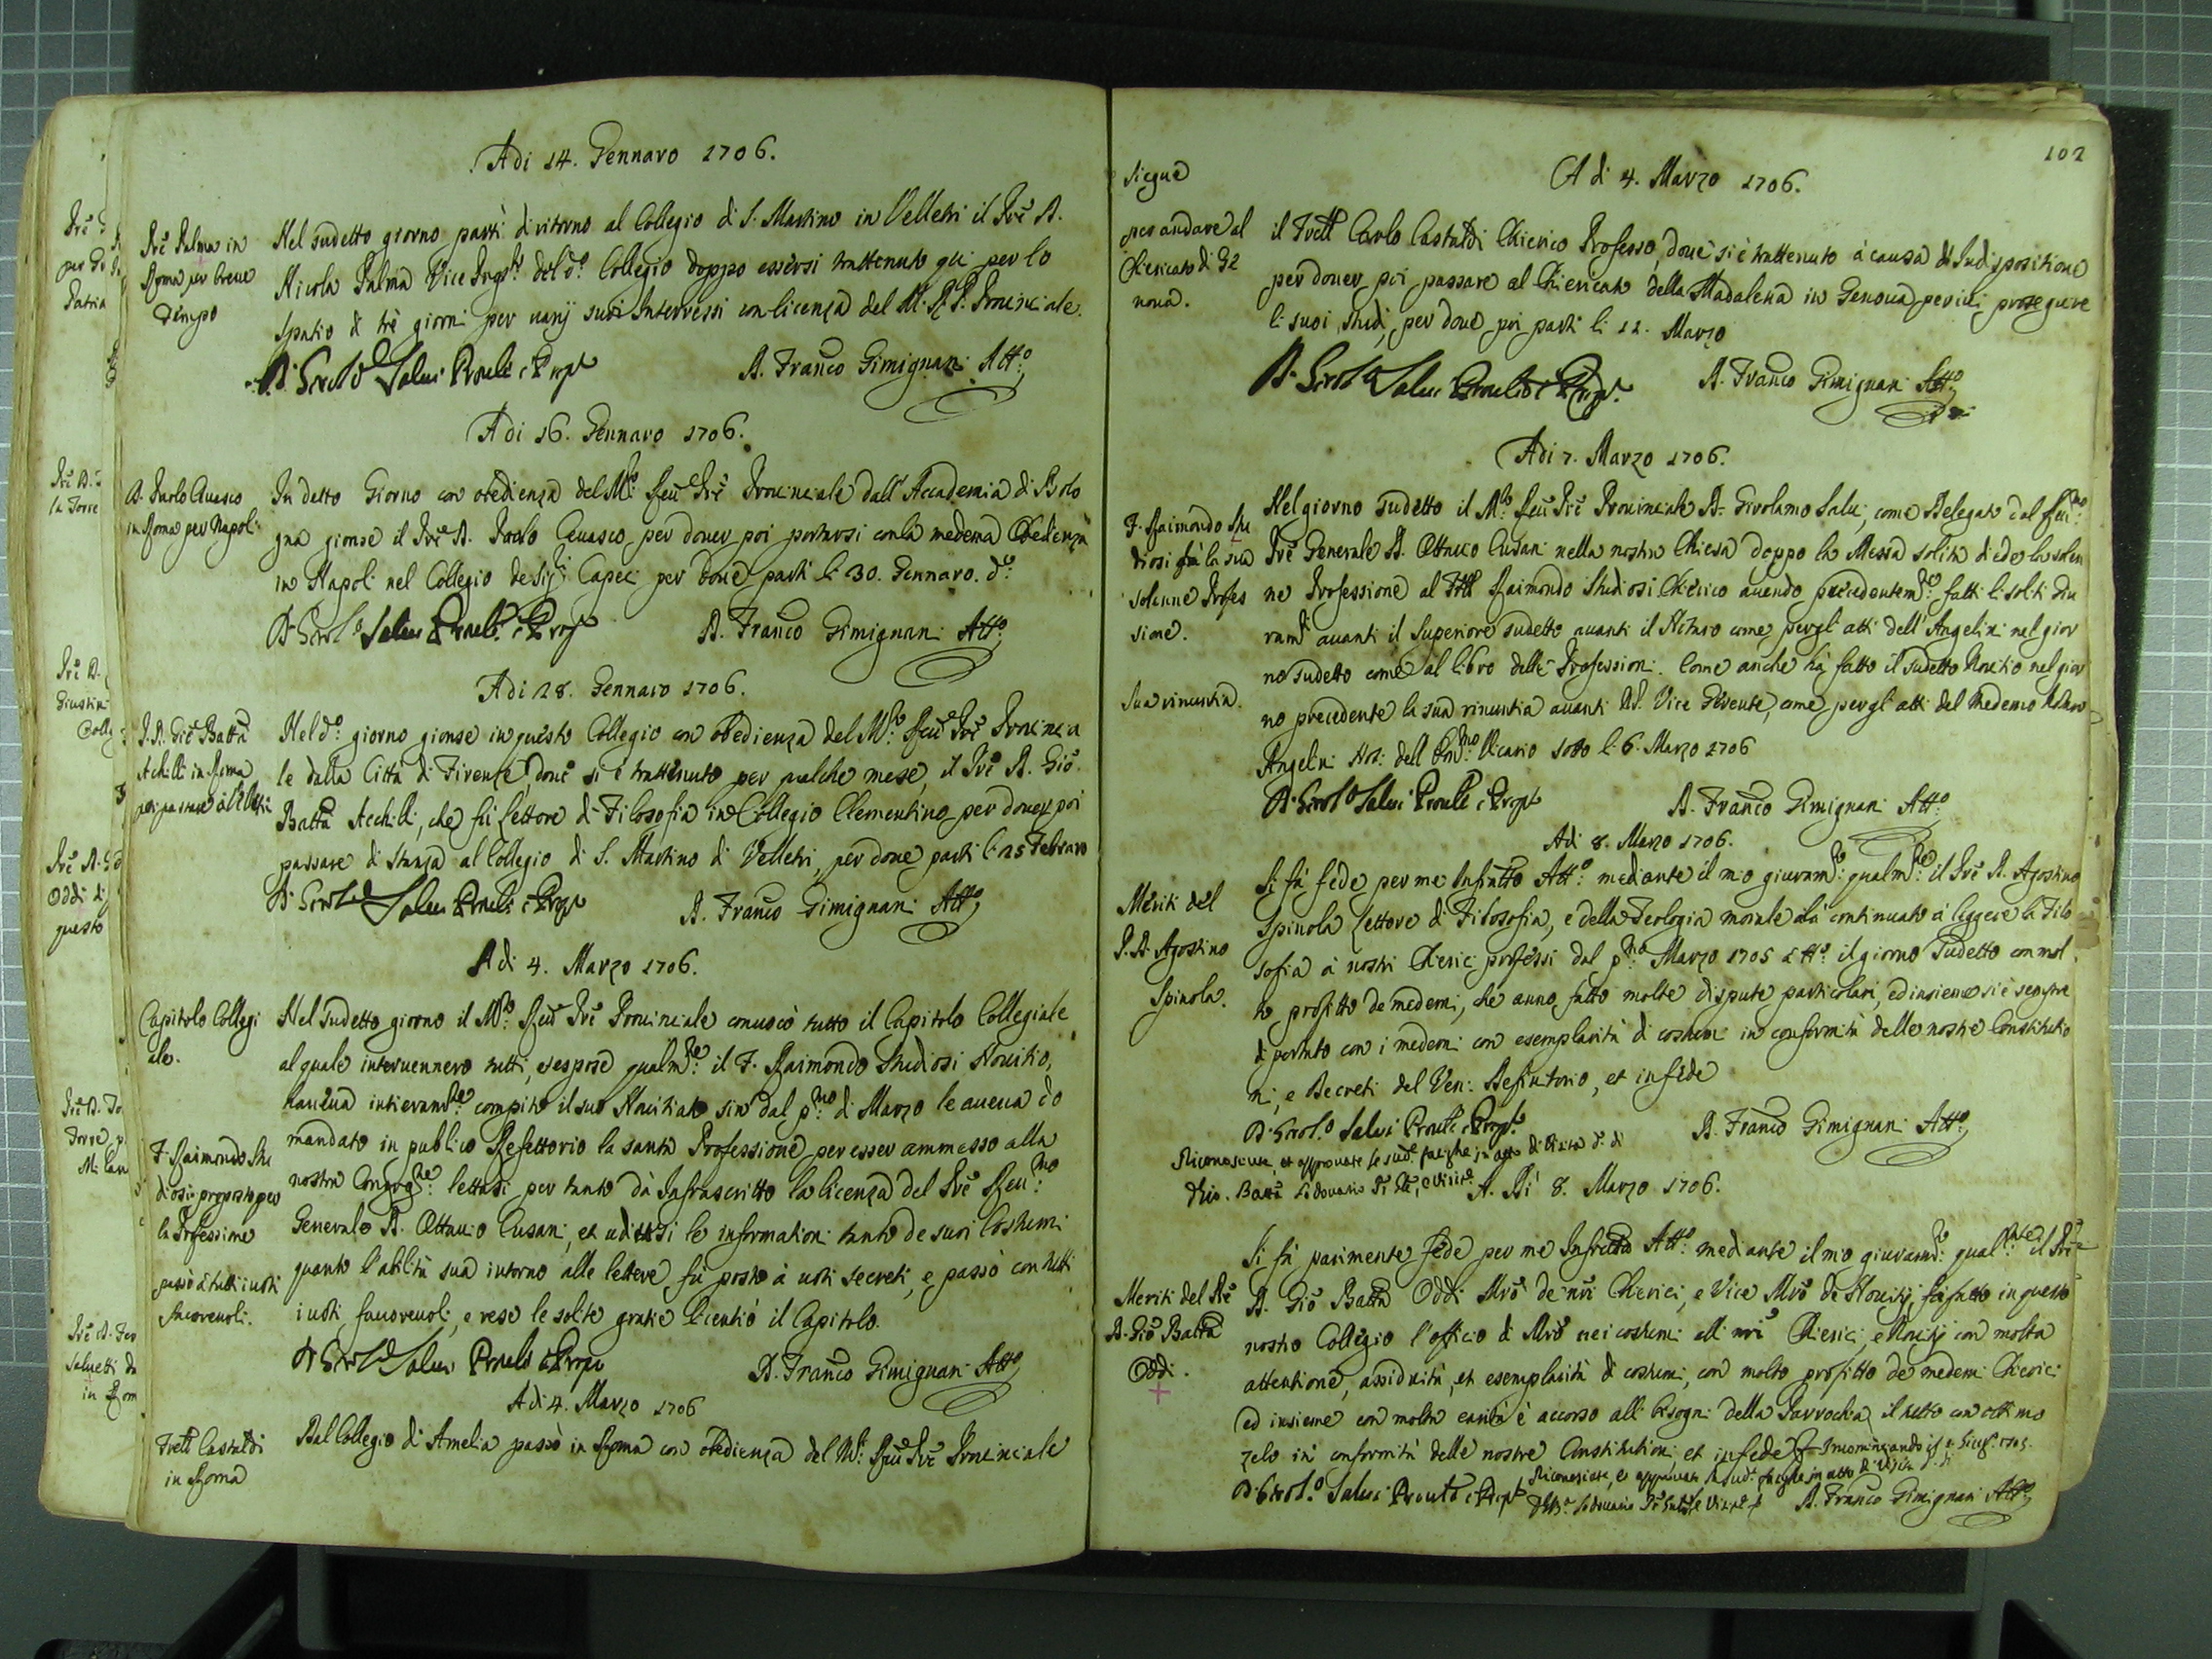 Adi 14. Gennaro 1706.
Pre Palma in
Roma per breue
tempo
Nel sudetto giorno partì di ritorno al Collegio di S. Martino in Velletri il Pre D.
Nicola Palma Vice Prep.to del d.o Collegio doppo essersi trattenuto qui per lo
spatio di trè giorni per uarij suoi Interressi con licenza del M. R. P. Prouinciale.
D. Girol.o Salui Proule e Prep.to D. Franco Gimignani Att.o
Adi 16. Gennaro 1706.
D. Paolo Guasco
in Roma per Napoli
In detto Giorno con obedienza del M.to Reu Pre Prouinciale dall'Accademia di Bolo
gna gionse il Pre D. Paolo Guasco, per douer poi portarsi con la medema Obedienza
in Napoli nel Collegio de Sig.ri Capeci per doue partì li 30. Gennaro. d.o
D. Girol.o Salui Proule e Prep.to D. Franco Gimignani Att.o
Adi 28. Gennaro 1706.
P. D. Gio Batta
Achilli in Roma
per passare à Velletri
Nel d.o giorno gionse in questo Collegio con obedienza del M.to Reu Pre Prouincia
le dalla Città di Firenze, doue si è trattenuto per qualche mese, il Pre D. Gio.
Batta Acchilli, che fù Lettore di Filosofia in Collegio Clementino per douer poi
passare di stanza al Collegio di S. Martino di Velletri, per doue partì li 25 Febraro
D. Girol.o Salui Proule e Prep.to D. Franco Gimignani Att.o
Adi 4. Marzo 1706.
Capitolo Collegi
ale.
Nel sudetto giorno il M.to Reu Pre Prouinciale conuocò tutto il Capitolo Collegiale
al quale interuennero tutti, et espose qualm.te il F. Raimondo Studiosi Nouitio,
haueua intieram.te compito il suo Nouitiato sin dal p.mo di Marzo le aueua do
F. Raimondo Stu
diosi proposto per
la Professione
passò à tutti i uoti
fauoreuoli.
mandato in publico Refettorio la santa Professione per esser ammesso alla
nostra Congreg.ne: lettasi per tanto dà Infrascritto la licenza del Pre Reu.mo
Generale D. Ottauio Cusani, et uditesi le informationi tanto de suoi Costumi
quanto l'abilità sua intorno alle lettere fù posto à uoti secreti, e passò con tutti
i uoti fauoreuoli, e rese le solite gratie licentiò il Capitolo.
D. Girol.o Salui Proule e Prep.to D. Franco Gimignani Att.o
Adi 4. Marzo 1706
Frell Castaldi
in Roma
Dal Collegio di Amelia passò in Roma con obedienza del M.to Reu Pre Prouinciale
102
Siegue
A di 4. Marzo 1706.
per andare al
Chiericato di Ge
noua.
il Frell Carlo Castaldi Chierico Professo, doue si è trattenuto à causa di Indispositione
per douer poi passare al Chiericato della Madalena in Genoua per iui proseguire
li suoi studi, per doue poi partì li 12. Marzo
D. Girol.o Salui Proule e Prep.to D. Franco Gimignani Att.o
Adi 7. Marzo 1706.
F. Raimondo Stu
diosi fà la sua
solenne Profes
sione.
Nel giorno sudetto il M.to Reu Pre Prouinciale D. Girolamo Salui, come Delegato dal Reu.mo
Pre Generale D. Ottauio Cusani nella nostra Chiesa doppo la Messa solita diede la solen
ne Professione al Frell Raimondo Studiosi Chierico auendo precedentem.te fatti li soliti Giu
ram.ti auanti il Superiore sudetto auanti il Notaro come per gl'atti dell'Angelini nel gior
no sudetto come al libro delle Professioni. Come anche hà fatto il sudetto Nouitio nel gior
Sua rinuntia.
no precedente la sua rinuntia auanti Vice Gerente, come per gl'atti del medemo Notaro
Angelini Not. dell' Em.mo Vicario sotto li 6. Marzo 1706
D. Girol.o Salui Proule e Prep.to D. Franco Gimignani Att.o
Adi 8. Marzo 1706.
Meriti del
P. D. Agostino
Spinola.
Si fà fede per me Infratto Att.o mediante il mio giuram.to qualm.te il Pre D. Agostino
Spinola Lettore di Filosofia, e della Teologia morale à continuato à leggere la Filo
sofia à nostri Chierici professi dal p.mo Marzo 1705 il giorno sudetto con mol
to profitto de medemi, che anno fatto molte dispute particolari, ed insieme si è sempre
di portato con i medemi con esemplarità di costumi in conformità delle nostre Constitutio
ni, e Decreti del Ven. Definitorio, et in fede
D. Girol.o Salui Proule e Prep.to D. Franco Gimignani Att.o
Riconosciute, et approuate le sud.e fatighe in atto di Visita d. di
Gio. Batta Lodouasio Pr. Gle, e Visit.e
A. Di 8. Marzo 1706.
Meriti del Pre
D. Gio Batta
Oddi.
Si fà parimente fede per me Infratto Att.o mediante il mio giuram.to qualm.te il Pre
D. Gio Batta Oddi Mro de nri Chierici, e Vice Mro de Nouitij, hà fatto in questo
nostro Collegio l'officio di Mro nei costumi alli nri Chierici, e Nouitij con molta
attentione, assiduità, et esemplarità di costumi, con molto profitto de medemi Chierici
ed insieme con molta carità è accorso alli bisogni della Parrochia, il tutto con ottimo
zelo in conformità delle nostre Constitutioni et in fede Incominciando il Giug. 1705.
Riconosciute, et approuate le sud.e fatighe in atto di Visita d. di
D. Girol.o Salui Proule e Prep.to D. Franco Gimignani Att.o